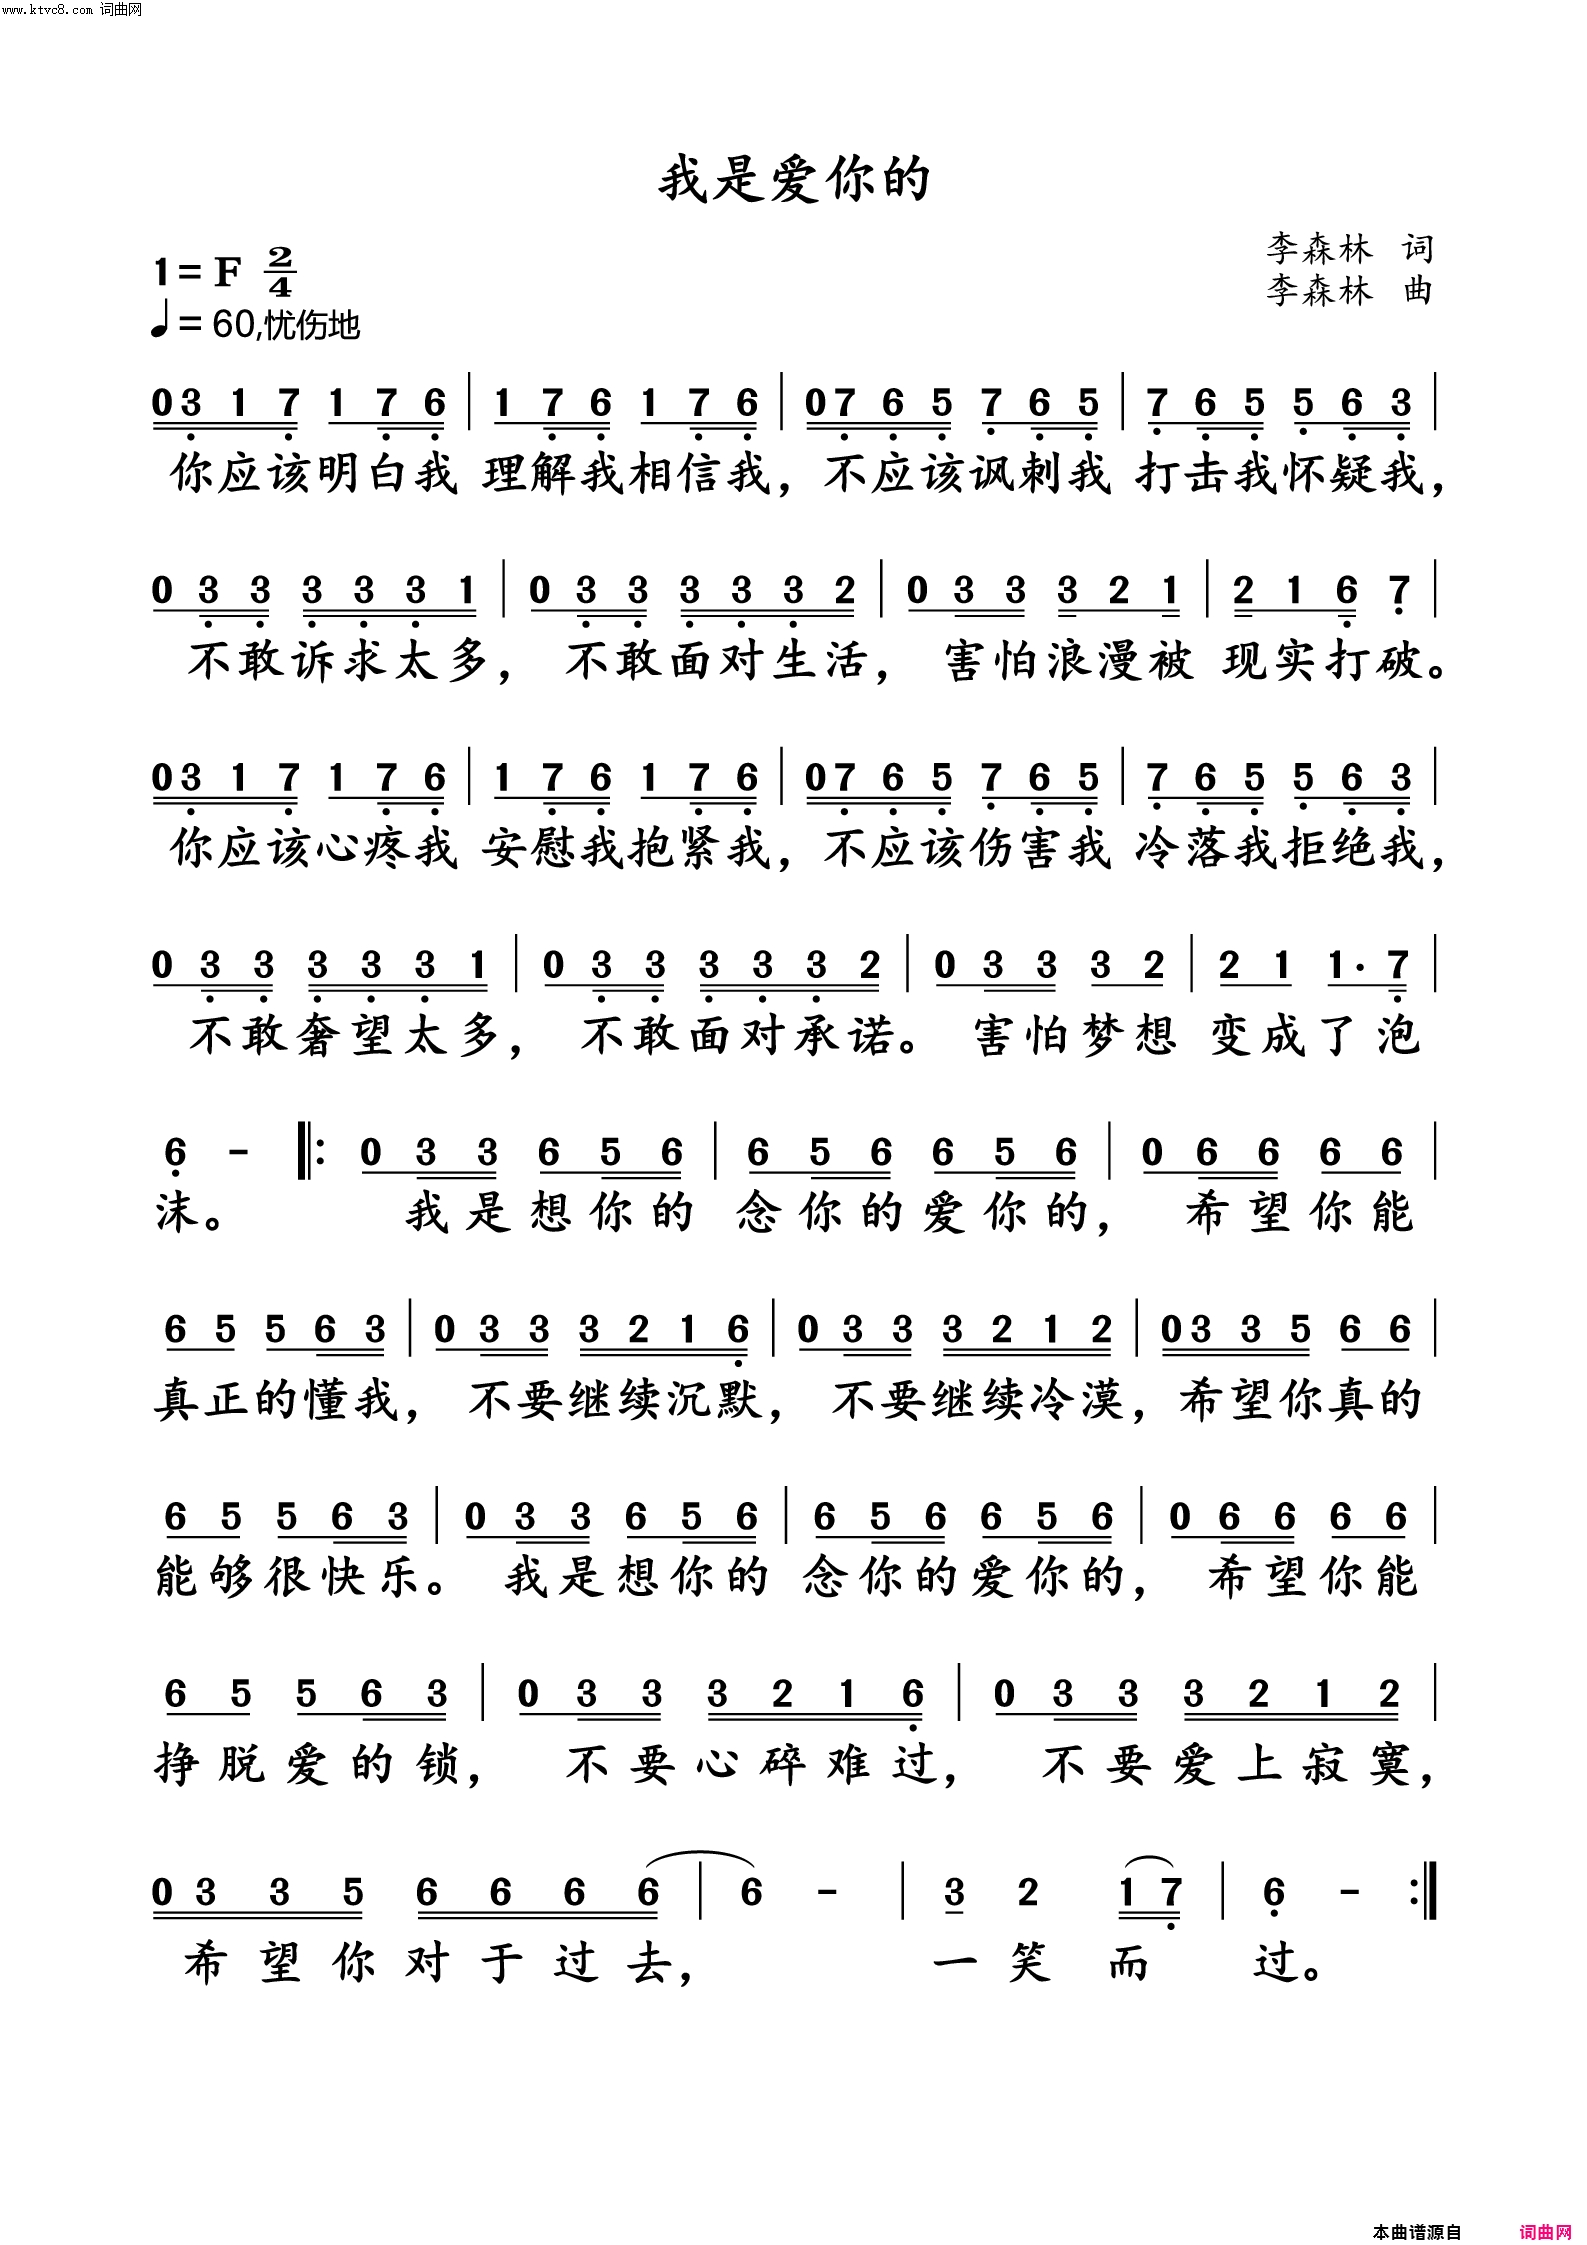 www.ktvc8.com 词曲网
我是爱你的
1=F 2/4
李森林 词
♩=60,忧伤地
李森林 曲
0 3 1 7 1 7 6 | 1 7 6 1 7 6 | 0 7 6 5 7 6 5 | 7 6 5 5 6 3 |
你应该明白我 理解我相信我，不应该讽刺我 打击我怀疑我，
0 3 3 3 3 3 1 | 0 3 3 3 3 3 2 | 0 3 3 3 2 1 | 2 1 6 7 |
不敢诉求太多，不敢面对生活，害怕浪漫被 现实打破。
0 3 1 7 1 7 6 | 1 7 6 1 7 6 | 0 7 6 5 7 6 5 | 7 6 5 5 6 3 |
你应该心疼我 安慰我抱紧我，不应该伤害我 冷落我拒绝我，
0 3 3 3 3 3 1 | 0 3 3 3 3 3 2 | 0 3 3 3 2 | 2 1 1· 7 |
不敢奢望太多，不敢面对承诺。害怕梦想 变成了泡
6 - |: 0 3 3 6 5 6 | 6 5 6 6 5 6 | 0 6 6 6 6 |
沫。 我是想你的 念你的爱你的，希望你能
6 5 5 6 3 | 0 3 3 3 2 1 6 | 0 3 3 3 2 1 2 | 0 3 3 5 6 6 |
真正的懂我，不要继续沉默，不要继续冷漠，希望你真的
6 5 5 6 3 | 0 3 3 6 5 6 | 6 5 6 6 5 6 | 0 6 6 6 6 |
能够很快乐。我是想你的 念你的爱你的，希望你能
6 5 5 6 3 | 0 3 3 3 2 1 6 | 0 3 3 3 2 1 2 |
挣脱爱的锁，不要心碎难过，不要爱上寂寞，
0 3 3 5 6 6 6 6 | 6 - | 3 2 1 7 | 6 - :|
希望你对于过去，一笑而 过。
本曲谱源自 词曲网